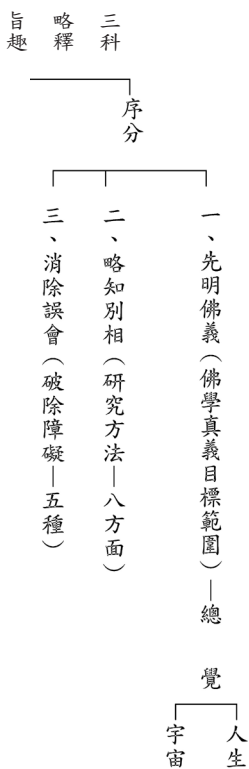 三科
略釋
旨趣
序分
一、先明佛義（佛學真義目標範圍）—總 覺
人生
宇宙
二、略知別相（研究方法—八方面）
三、消除誤會（破除障礙—五種）